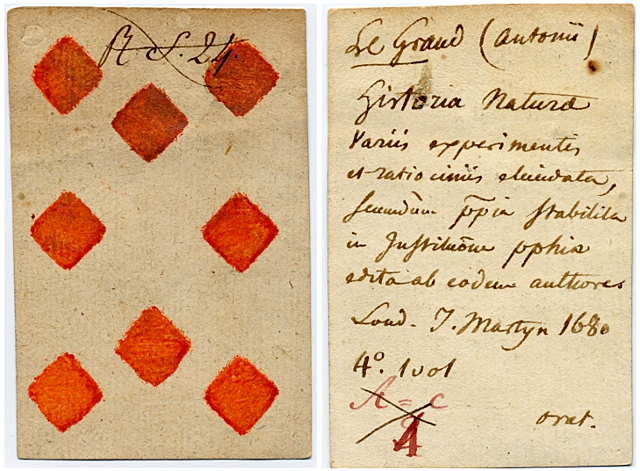 A S. 24.
Le Grand (Antonii)
Historia Naturæ
Variis experimentis
et ratiociniis elucidata,
secundùm ppia stabilita
in Institutiōne pphiæ
edita ab eodem authore
Lond. J. Martyn 1680
4°. 1 vol
A = c
4
orat.